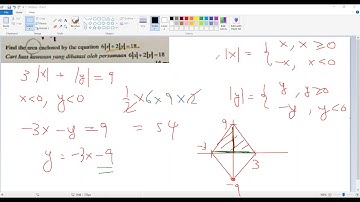 Find the area enclosed by the equation 6|x| + 2|y| = 18.
Cari luas kawasan yang dibatasi oleh persamaan 6|x| + 2|y| = 18
3|x| + |y| = 9
x<0, y<0
-3x-y = 9
y = -3x-9
1/2 × 6 × 9 × 2
= 54
|x| = { x, x≥0
-x, x<0
|y| = { y, y≥0
-y, y<0
9
-3
3
-9